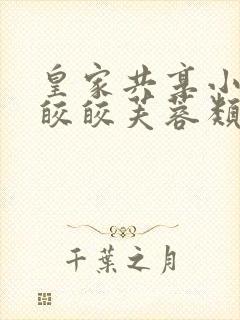 皇家共享小
皎皎芙蓉颜
千葉之月